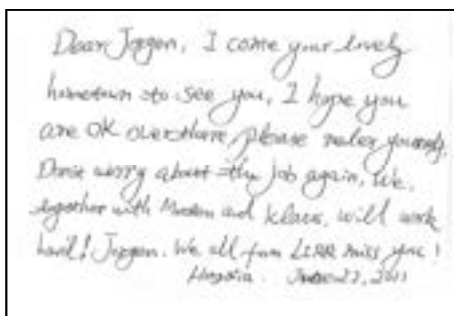 Dear Jørgen, I come your lovely
hometown to see you, I hope you
are OK over there, please relax yourself.
Don't worry about the job again, We,
together with and Klaus, will work
hard! Jørgen. We all from miss you!
June 27, 2011